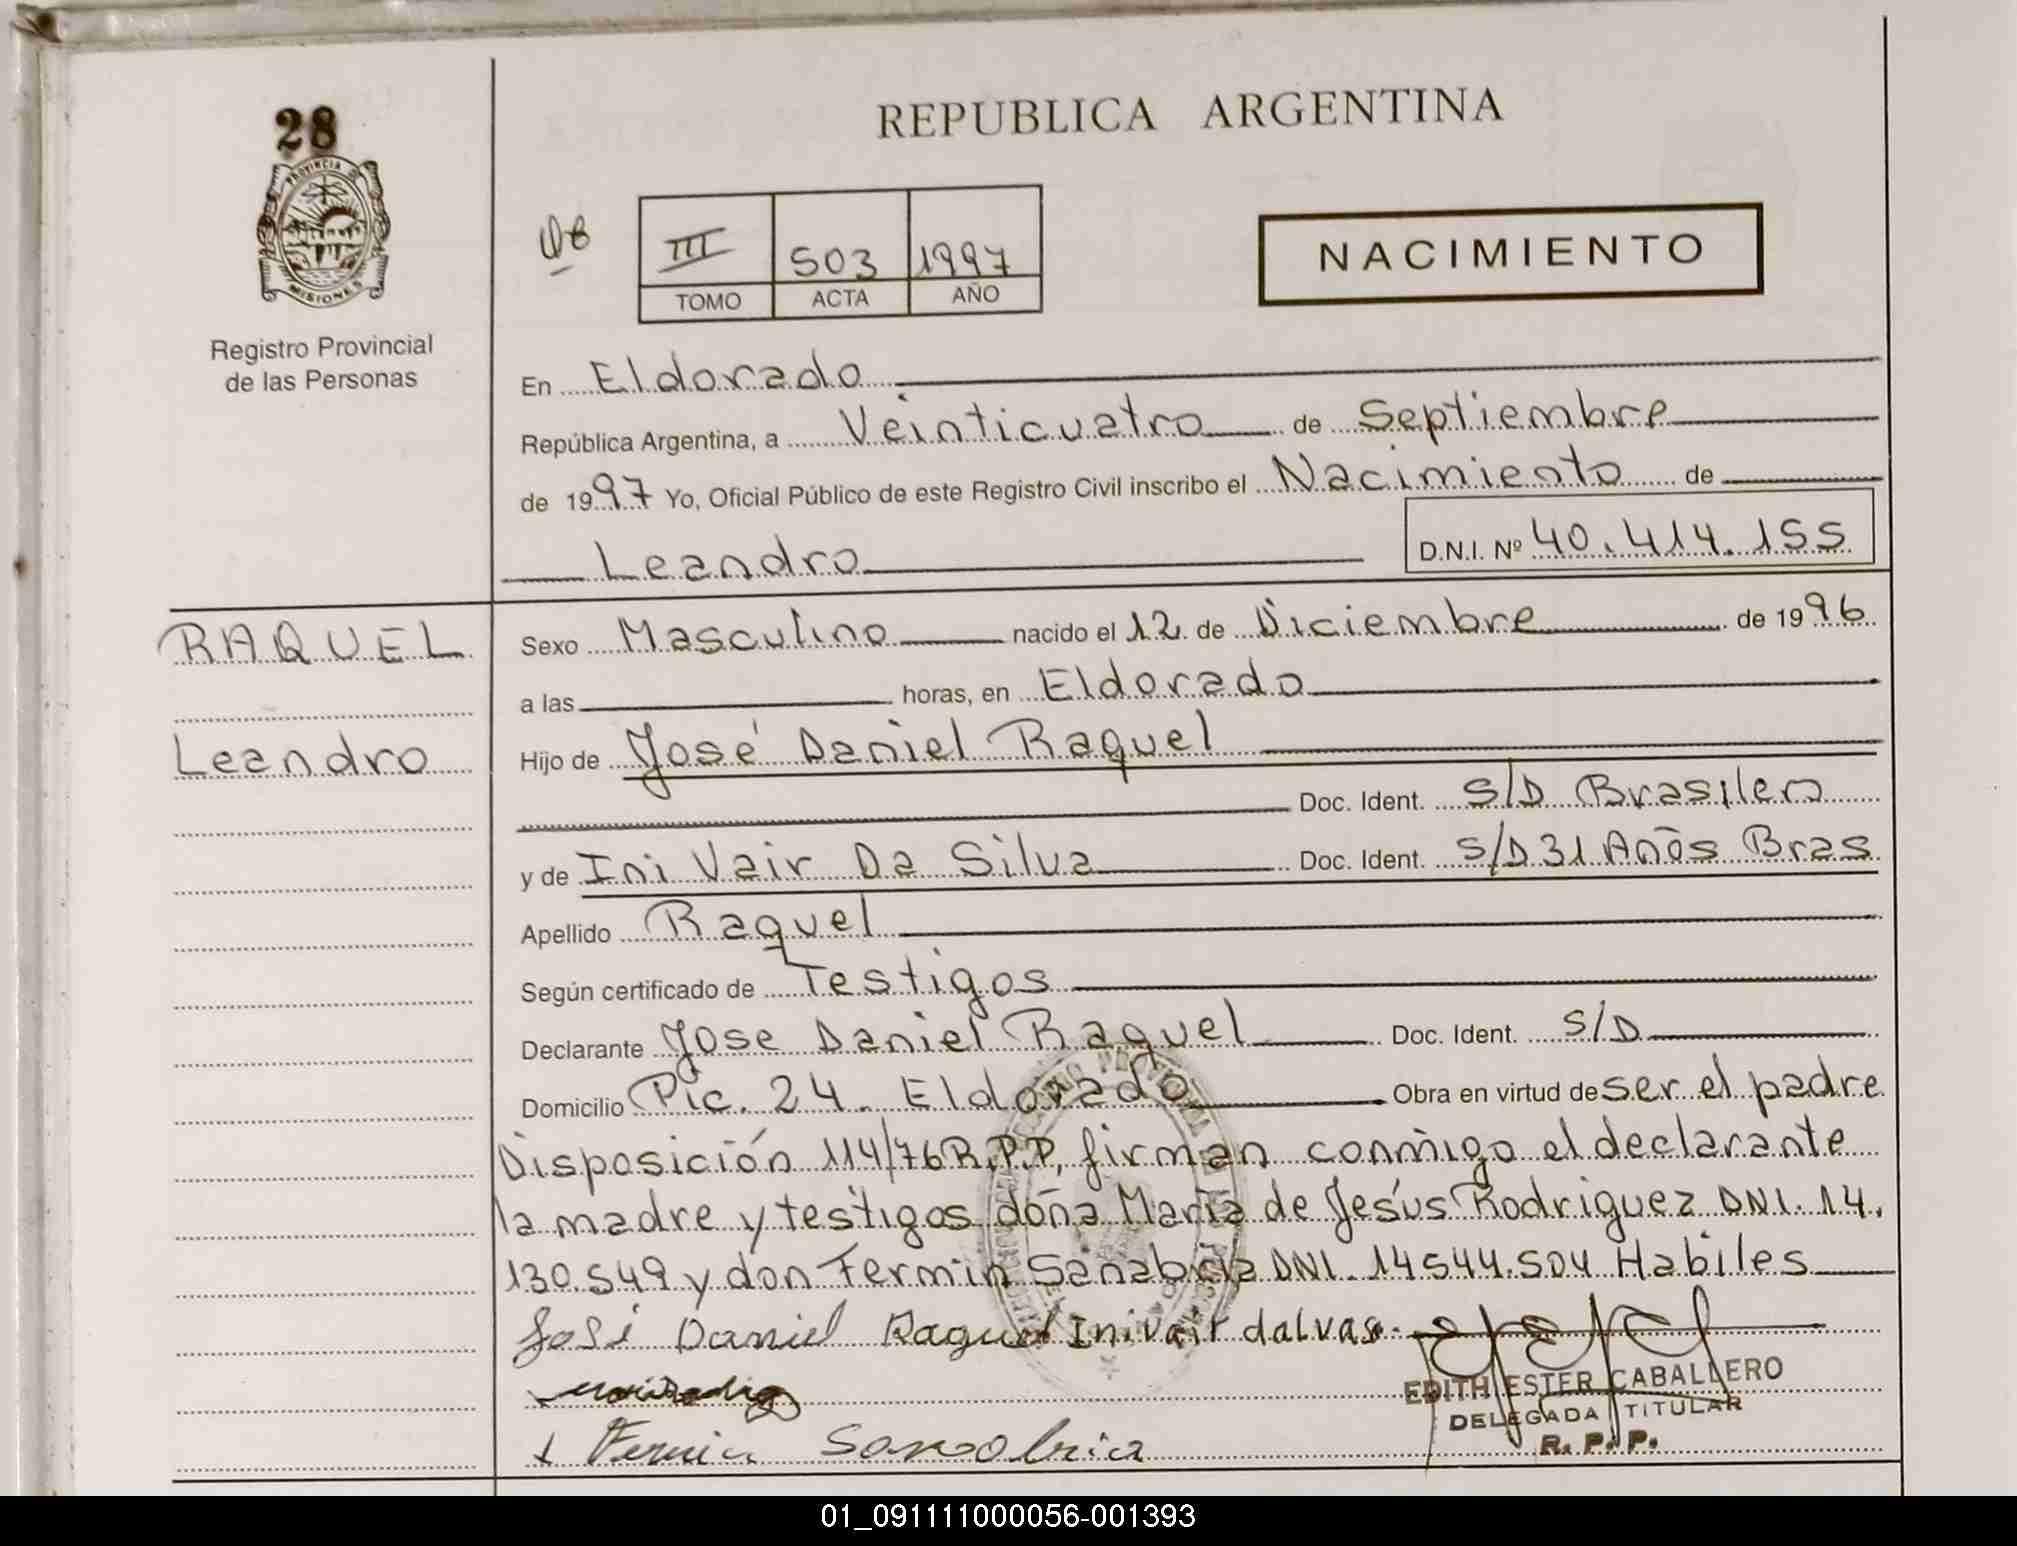 28
REPUBLICA ARGENTINA
PROVINCIA DE
MISIONES
III 503 1997
TOMO ACTA AÑO
NACIMIENTO
Registro Provincial
de las Personas
En Eldorado
República Argentina, a Veinticuatro de Septiembre
de 1997 Yo, Oficial Público de este Registro Civil inscribo el Nacimiento de
Leandro D.N.I. Nº 40.414.155
RAQUEL
Leandro
Sexo Masculino nacido el 12 de Diciembre de 1996
a las horas, en Eldorado
Hijo de José Daniel Raquel
Doc. Ident. S/D Brasilero
y de Ini Vair Da Silva Doc. Ident. S/D 31 Años Bras
Apellido Raquel
Según certificado de Testigos
Declarante Jose Daniel Raquel Doc. Ident. S/D
Domicilio Pic. 24. Eldorado Obra en virtud de ser el padre
Disposición 114/76 R.P.P, firman conmigo el declarante
la madre y testigos doña María de Jesús Rodriguez DNI. 14.
130.549 y don Fermin Sanabria DNI. 14544.504 Habiles
José Daniel Raquel Inivair dalvas
EDITH ESTER CABALLERO
DELEGADA TITULAR
R. P. P.
01_091111000056-001393